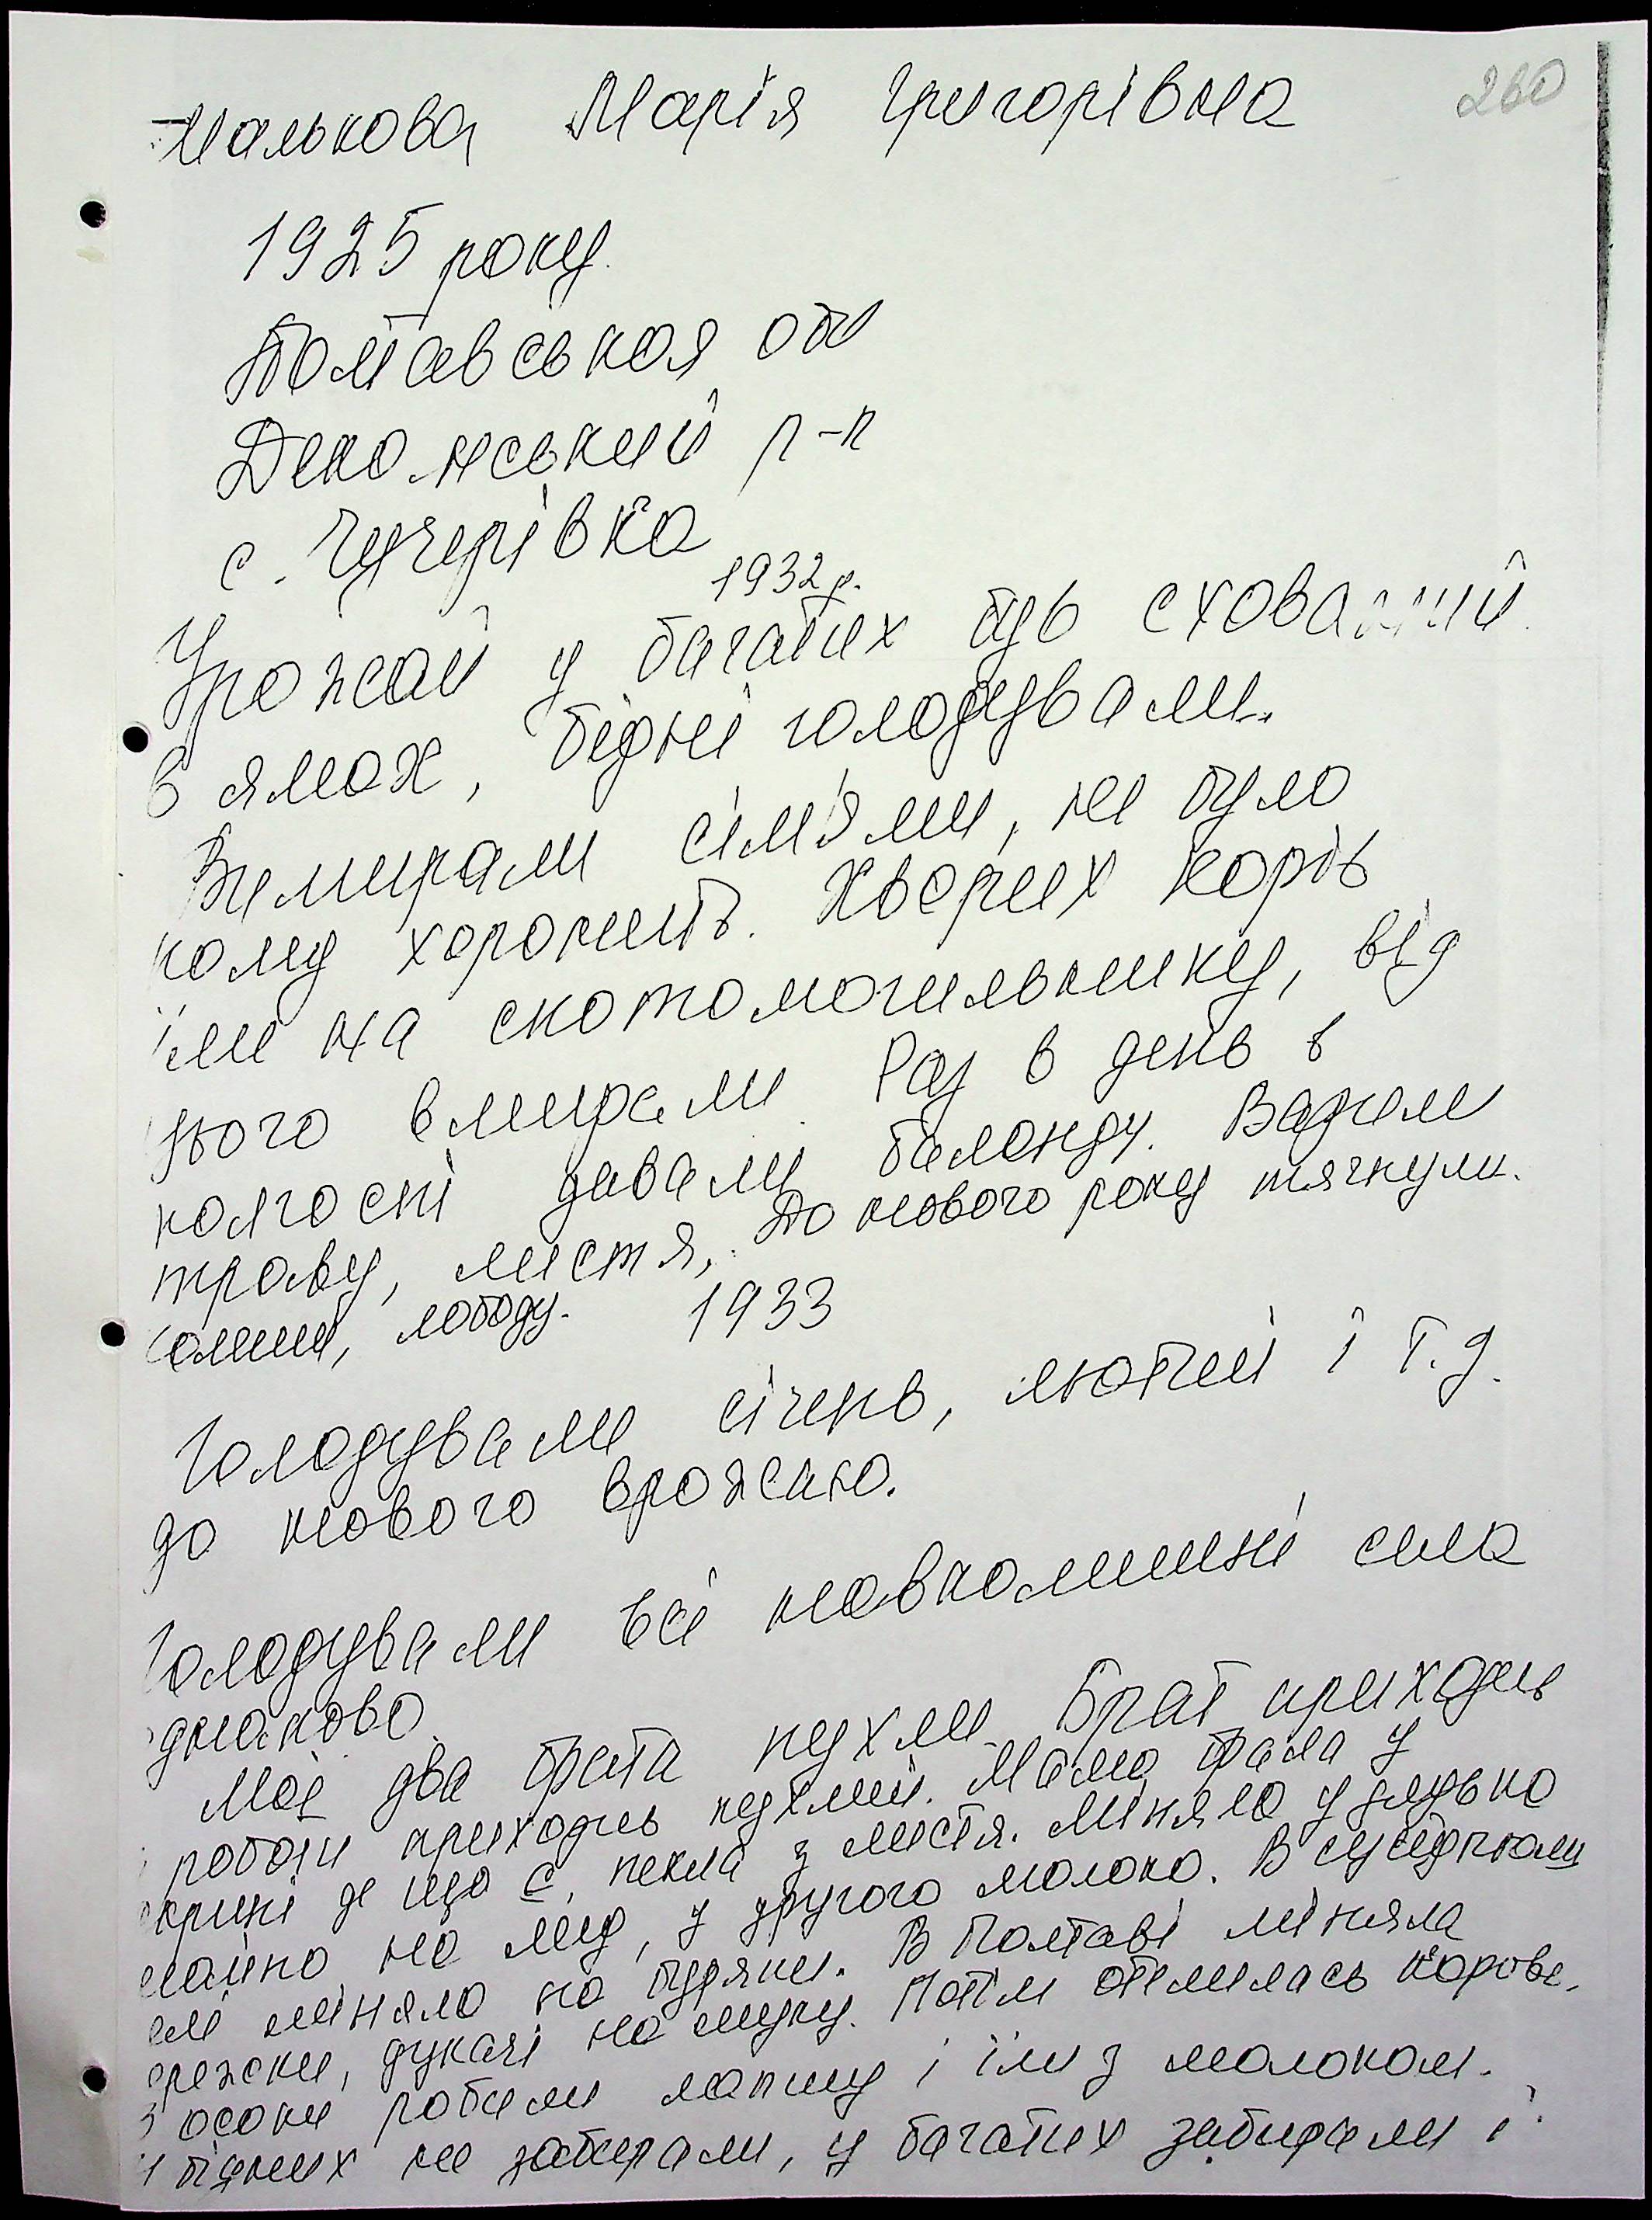 Малькова Марія Григорівна 260
1925 року.
Полтавськоя обл
Деканський р-н
с. Чучерівка
1932 р.
Урожай у багатих був схований
в ямах, бідні голодували.
Вимирали сім'ями, не було
кому хоронить. Хворих корів
їли на скотомогильнику, від
цього вмирали. Раз в день в
колгоспі давали баланду. Варили
траву, листя, До нового року тягнули.
лободу. 1933
Голодували січень, лютий і т.д.
до нового врожаю.
Голодували всі навколишні села
однаково.
Мої два брата пухли. Брат приходив
роботи приходив пухлий. Мама брала у
скрині де що є, пекла з листя. Міняла у
на мед, у другого молоко. В
міняла на буряки. В Полтаві міняла
дукачі на муку. Потім отелилась корова.
З осоки робили лапшу і їли з молоком.
У бідних не забирали, у багатих забирали і